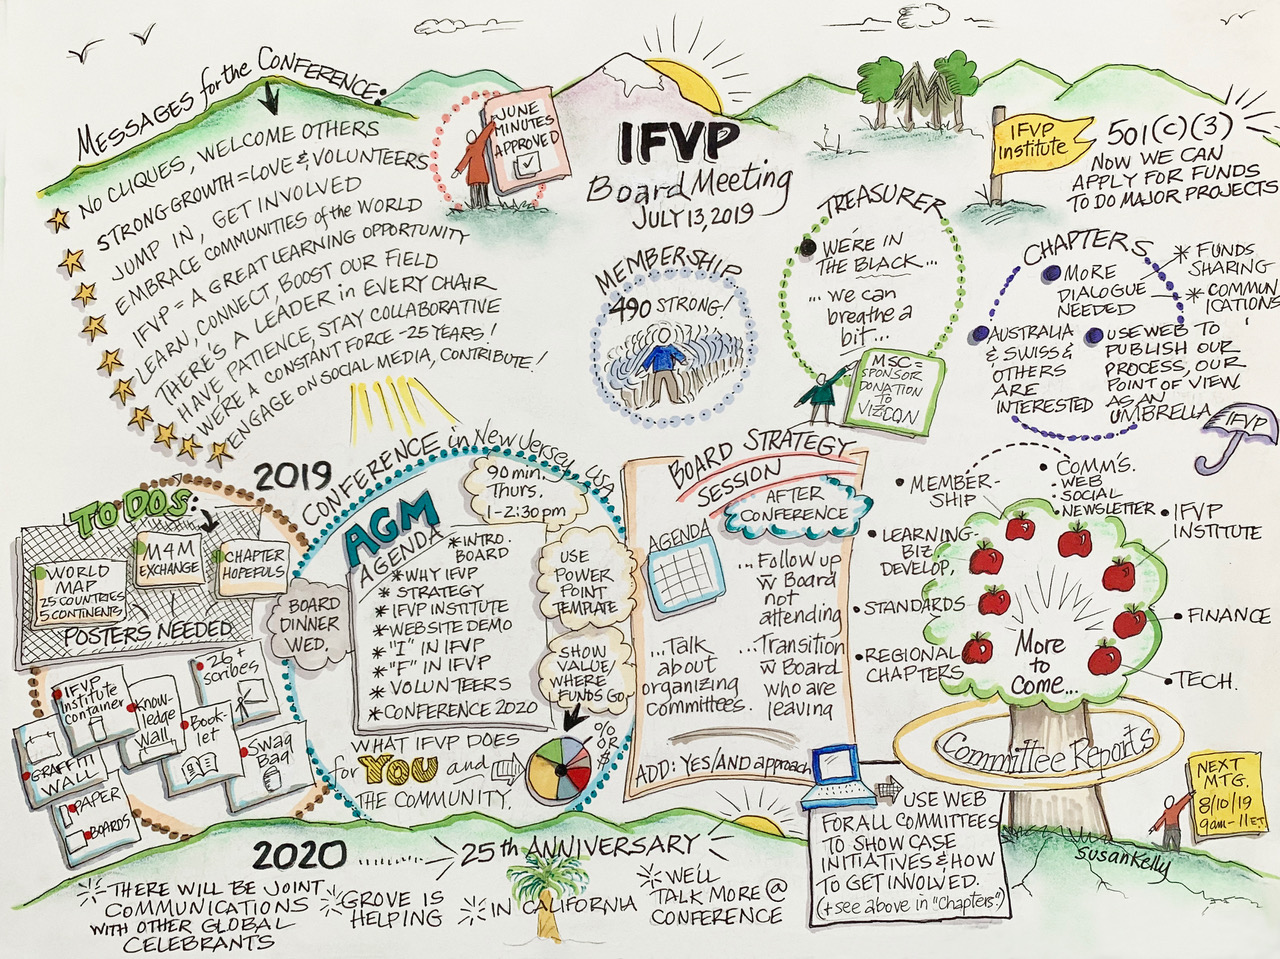 MESSAGES for the CONFERENCE:
NO CLIQUES, WELCOME OTHERS
STRONG GROWTH = LOVE & VOLUNTEERS
JUMP IN, GET INVOLVED
EMBRACE COMMUNITIES of the WORLD
IFVP = A GREAT LEARNING OPPORTUNITY
LEARN, CONNECT, BOOST OUR FIELD
THERE'S A LEADER in EVERY CHAIR
HAVE PATIENCE, STAY COLLABORATIVE
WE'RE A CONSTANT FORCE - 25 YEARS!
ENGAGE ON SOCIAL MEDIA, CONTRIBUTE!
JUNE
MINUTES
APPROVED
IFVP
Board Meeting
JULY 13, 2019
MEMBERSHIP
490 STRONG!
TREASURER
WE'RE IN
THE BLACK...
... we can
breathe a
bit...
MSC =
SPONSOR
DONATION
TO
VIZCON
IFVP
Institute
501(c)(3)
NOW WE CAN
APPLY FOR FUNDS
TO DO MAJOR PROJECTS
CHAPTERS
MORE
DIALOGUE
NEEDED
* FUNDS
SHARING
* COMMUN
ICATIONS
AUSTRALIA
& SWISS &
OTHERS
ARE
INTERESTED
USE WEB TO
PUBLISH OUR
PROCESS, OUR
POINT OF VIEW.
AS AN
UMBRELLA
IFVP
TO DOS:
WORLD
MAP
25 COUNTRIES
5 CONTINENTS
M4M
EXCHANGE
CHAPTER
HOPEFULS
POSTERS NEEDED
IFVP
Institute
container
Know-
ledge
Wall
26+
scribes
Book-
let
Swag
Bag
GRAFFITI
WALL
PAPER
BOARDS
2019
CONFERENCE in New Jersey, USA
90 min.
Thurs.
1-2:30pm
AGM
AGENDA
* INTRO.
BOARD
* WHY IFVP
* STRATEGY
* IFVP INSTITUTE
* WEBSITE DEMO
* "I" IN IFVP
* "F" IN IFVP
* VOLUNTEERS
* CONFERENCE 2020
BOARD
DINNER
WED.
USE
POWER
POINT
TEMPLATE
SHOW
VALUE/
WHERE
FUNDS GO
WHAT IFVP DOES
for YOU and
THE COMMUNITY.
% OR $
BOARD STRATEGY
SESSION
AFTER
CONFERENCE
AGENDA
... Follow up
w Board
not
attending
... Talk
about
organizing
committees.
... Transition
w Board
who are
leaving
ADD: YES/AND approach
• MEMBER-
SHIP
• COMM'S.
• WEB
• SOCIAL
• NEWSLETTER
• IFVP
INSTITUTE
• LEARNING-
BIZ
DEVELOP.
• STANDARDS
• REGIONAL
CHAPTERS
• FINANCE
• TECH.
More
to
come...
Committee Reports
USE WEB
FOR ALL COMMITTEES
TO SHOW CASE
INITIATIVES & HOW
TO GET INVOLVED.
(+ see above in "Chapters")
NEXT
MTG.
8/10/19
9am-11ET.
SusanKelly
2020
25th ANNIVERSARY
THERE WILL BE JOINT
COMMUNICATIONS
WITH OTHER GLOBAL
CELEBRANTS
GROVE IS
HELPING
IN CALIFORNIA
WE'LL
TALK MORE @
CONFERENCE